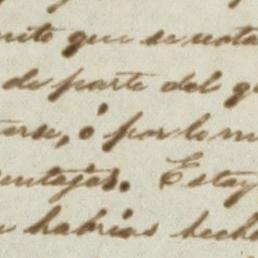 mite que se nota
de parte del g
terse, ó por lo m
entajas. Estoy
habrías hech